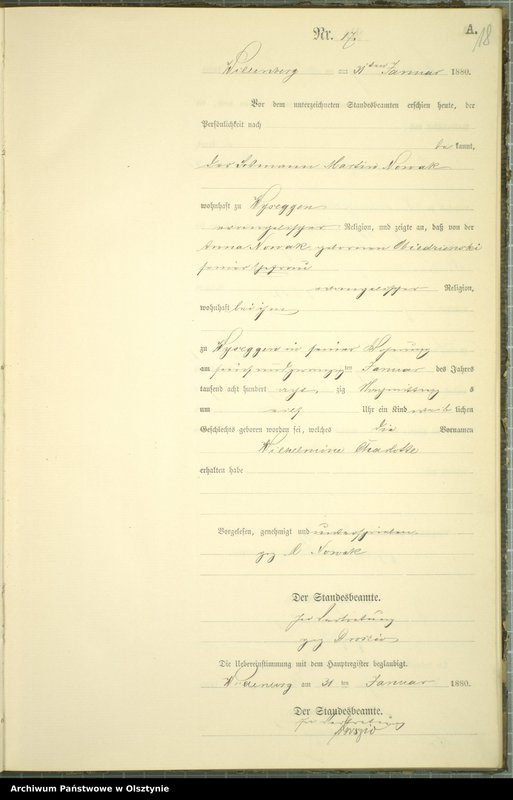 Nr. 17.
A.
18
Willenberg am 31ten Januar 1880.
Vor dem unterzeichneten Standesbeamten erschien heute, der
Persönlichkeit nach
be kannt,
der Martin Nowak
wohnhaft zu
evangelischer Religion, und zeigte an, daß von der
Anna Nowak, geborenen
seiner Ehefrau
evangelischer Religion,
wohnhaft bei ihm
zu in seiner Wohnung
am ten Januar des Jahres
tausend acht hundert acht zig Nachmittag s
um Uhr ein Kind weib lichen
Geschlechts geboren worden sei, welches die Vornamen
Wilhelmine Charlotte
erhalten habe
Vorgelesen, genehmigt und unterschrieben
gez Nowak
Der Standesbeamte.
In Vertretung
gez
Die Uebereinstimmung mit dem Hauptregister beglaubigt.
Willenberg am 31 ten Januar 1880.
Der Standesbeamte.
In Vertretung
Archiwum Państwowe w Olsztynie